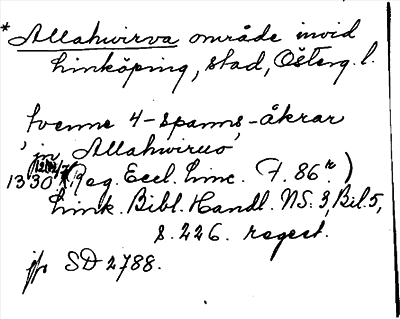 * Allahwirva område invid
Linköping, stad, Österg. l.
tvenne 4-spanns-åkrar
"in Allahwiruo"
1330 (Reg. Eccl. Linc. F. 86r.)
Link. Bibl. Handl. NS. 3, Bil. 5,
s. 226. regest.
jfr SD 2788.